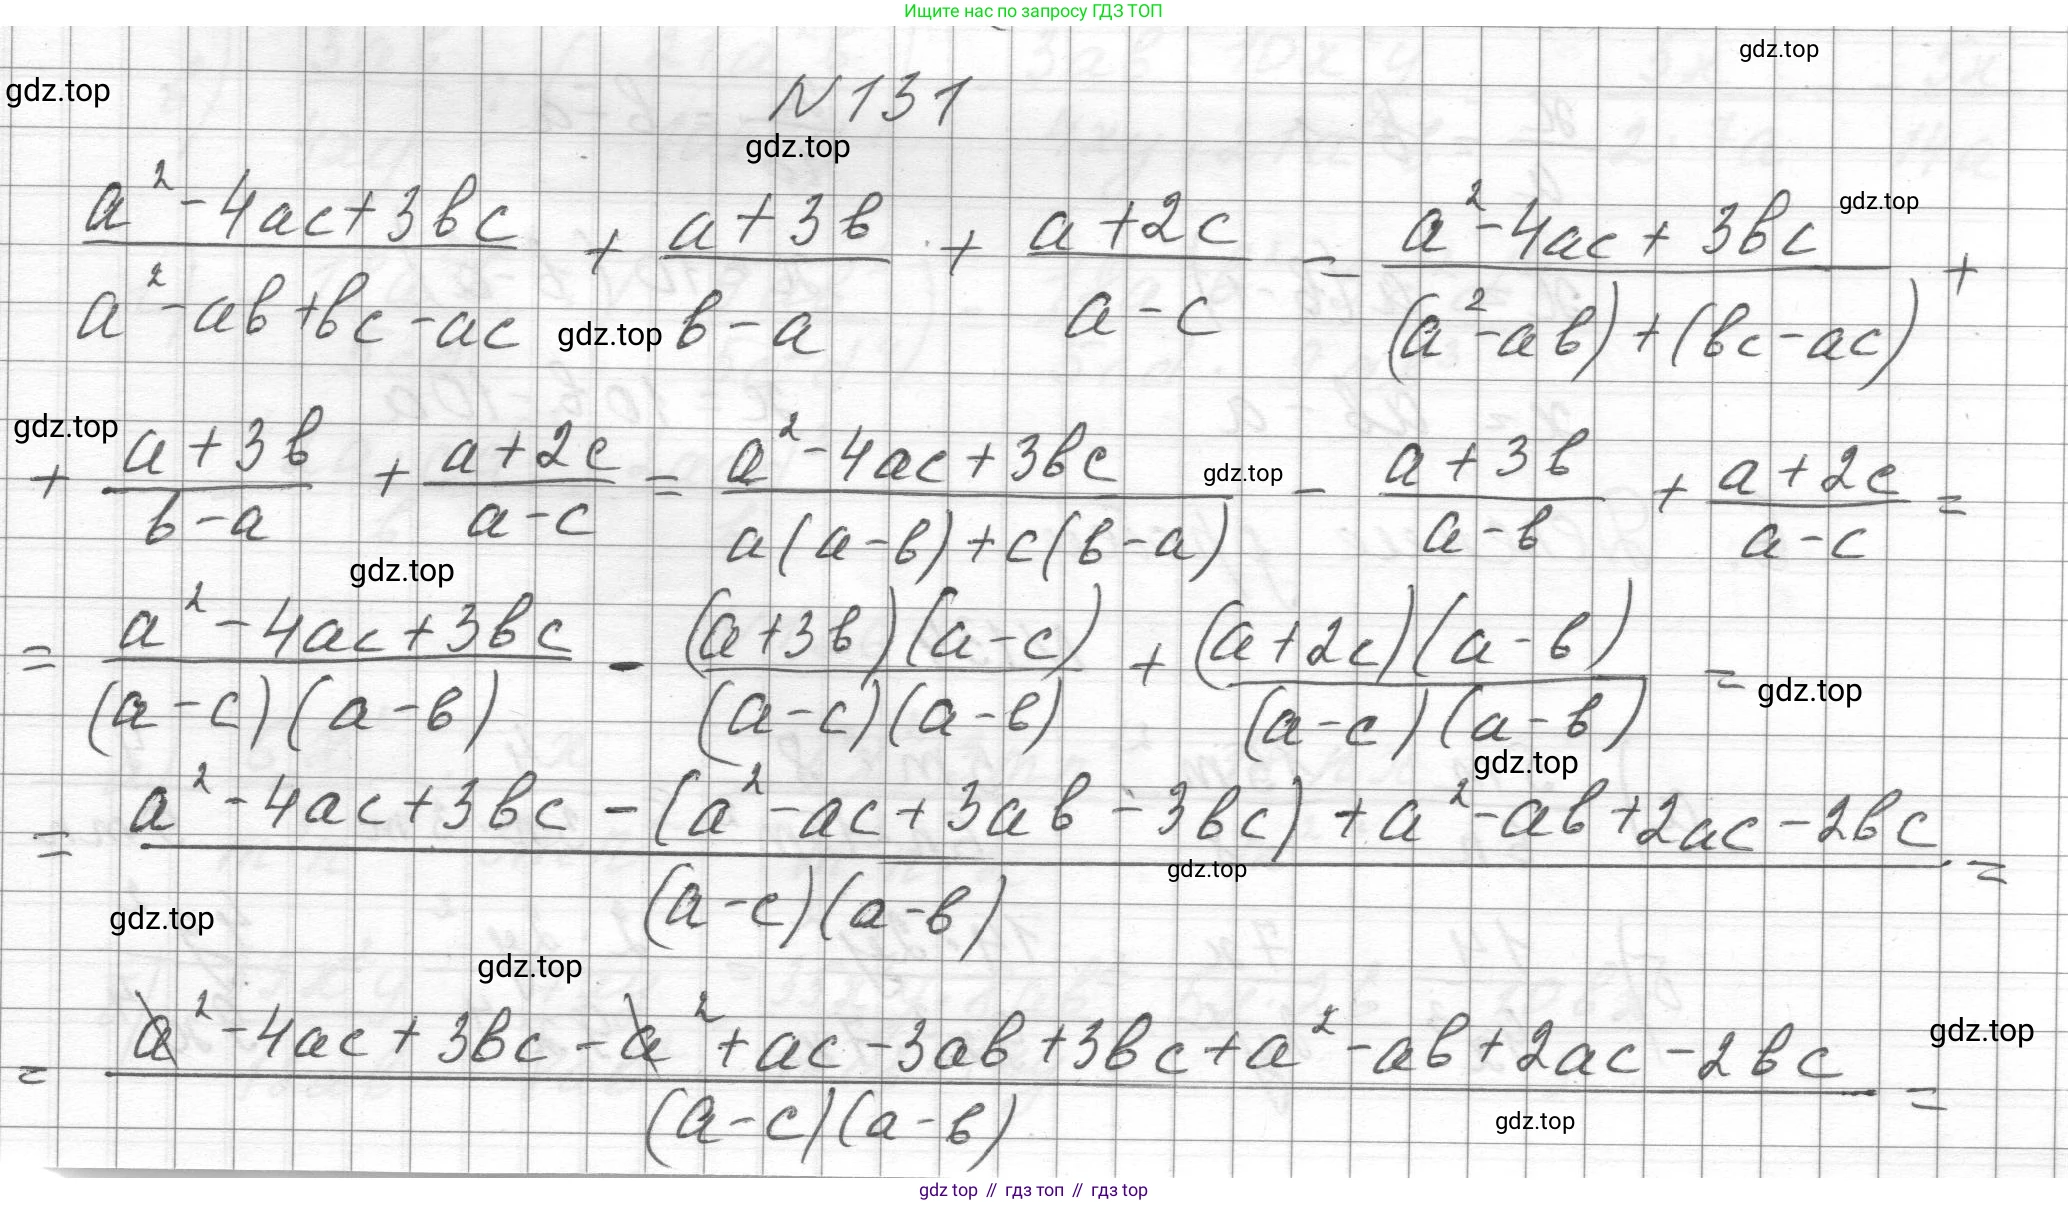 Ищите нас по запросу ГДЗ ТОП
gdz.top
gdz.top
N 131
gdz.top
(a² - 4ac + 3bc)/(a² - ab + bc - ac) + (a + 3b)/(b - a) + (a + 2c)/(a - c) = (a² - 4ac + 3bc)/((a² - ab) + (bc - ac)) +
gdz.top
gdz.top
gdz.top
+ (a + 3b)/(b - a) + (a + 2c)/(a - c) = (a² - 4ac + 3bc)/(a(a - b) + c(b - a)) - (a + 3b)/(a - b) + (a + 2c)/(a - c) =
gdz.top
gdz.top
= (a² - 4ac + 3bc)/((a - c)(a - b)) - ((a + 3b)(a - c))/((a - c)(a - b)) + ((a + 2c)(a - b))/((a - c)(a - b)) =
gdz.top
gdz.top
= (a² - 4ac + 3bc - (a² - ac + 3ab - 3bc) + a² - ab + 2ac - 2bc)/((a - c)(a - b)) =
gdz.top
gdz.top
gdz.top
= (a² - 4ac + 3bc - a² + ac - 3ab + 3bc + a² - ab + 2ac - 2bc)/((a - c)(a - b)) =
gdz.top
gdz.top
gdz top // гдз топ // гдз top